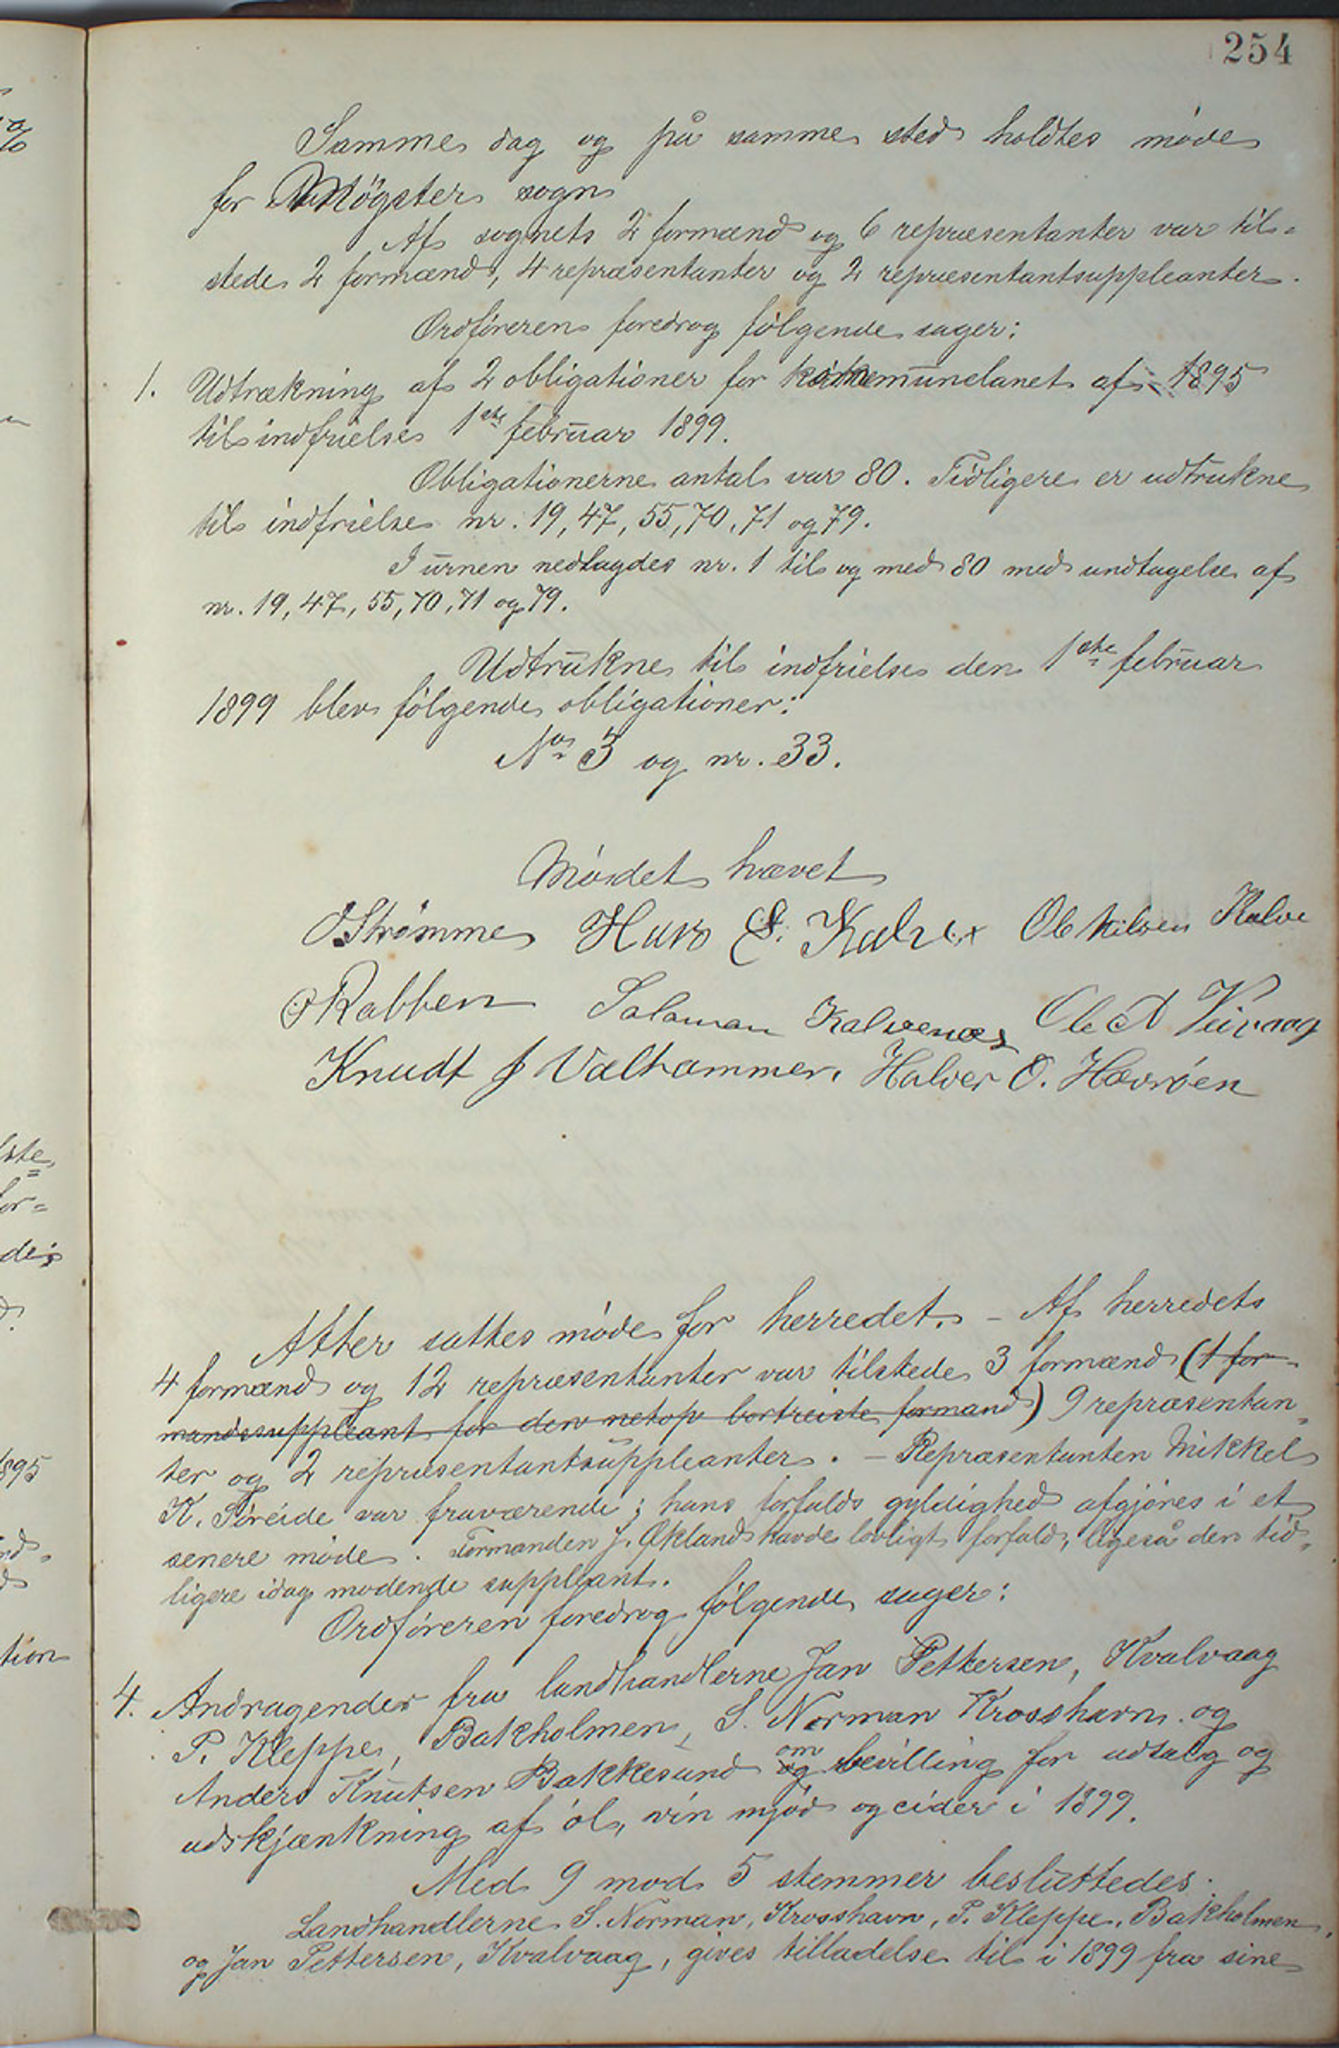 254
Samme dag og på samme sted holdtes møde
for Møgster sogn
Af sognets 2 formænd og 6 repræsentanter var til-
stede 2 formænd, 4 repræsentanter og 2 repræsentantsuppleanter.
Ordføreren foredrog følgende sager:
1. Udtrækning af 2 obligationer for kommunelånet af 1895
til indfrielse 1ste februar 1899.
Obligationerne antal var 80. Tidligere er udtrukne
til indfrielse nr. 19, 47, 55, 70, 71 og 79.
I urnen nedlagdes nr. 1 til og med 80 med undtagelse af
nr. 19, 47, 55, 70, 71 og 79.
Udtrukne til indfrielse den 1ste februar
1899 blev følgende obligationer:
No 3 og nr. 33.
Mødet hævet
O. Strømme Hans E. Kalve Ole Nilsen Kalve
O Rabben Salamon Kalvenæs Ole A Veivaag
Knudt J Valhammer, Halver O. Hævrøen
Atter sattes møde for herredet. - Af herredets
4 formænd og 12 repræsentanter var tilstede 3 formænd (1 for-
mandssuppleant for den netop bortreiste formand) 9 repræsentan-
ter og 2 repræsentantsuppleanter. - Repræsentanten Mikkel
K. Søreide var fraværende; hans forfalds gyldighed afgjøres i et
senere møde. Formanden J. Økland havde lovligt forfald, ligeså den tid-
ligere idag mødende suppleant.
Ordføreren foredrog følgende sager:
4. Andragender fra landhandlerne Jan Pettersen, Kvalvaag
P. Kleppe, Bakholmen, S. Norman Krosshavn og
Anders Knutsen Bakkesund og om bevilling for udsalg og
udskjænkning af øl, vin mjød og cider i 1899.
Med 9 mod 5 stemmer besluttedes.
Landhandlerne S. Norman, Krosshavn, P. Kleppe, Bakholmen,
og Jan Pettersen, Kvalvaag, gives tilladelse til i 1899 fra sine